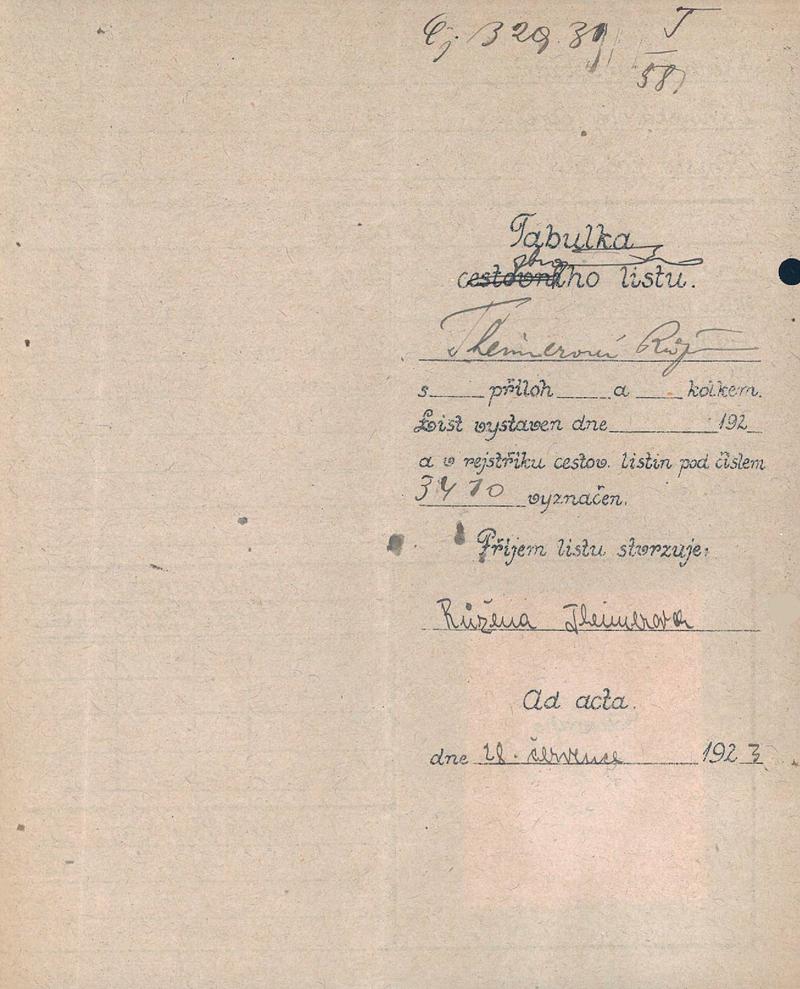 Čj 329.39 I
58
Tabulka
zbro
cestovního listu.
Theimerová Růž
s příloh a kolkem.
List vystaven dne 192
a v rejstříku cestov. listin pod číslem
3410 vyznačen.
Příjem listu stvrzuje:
Růžena Theimerova
Ad acta.
dne 28. července 1923